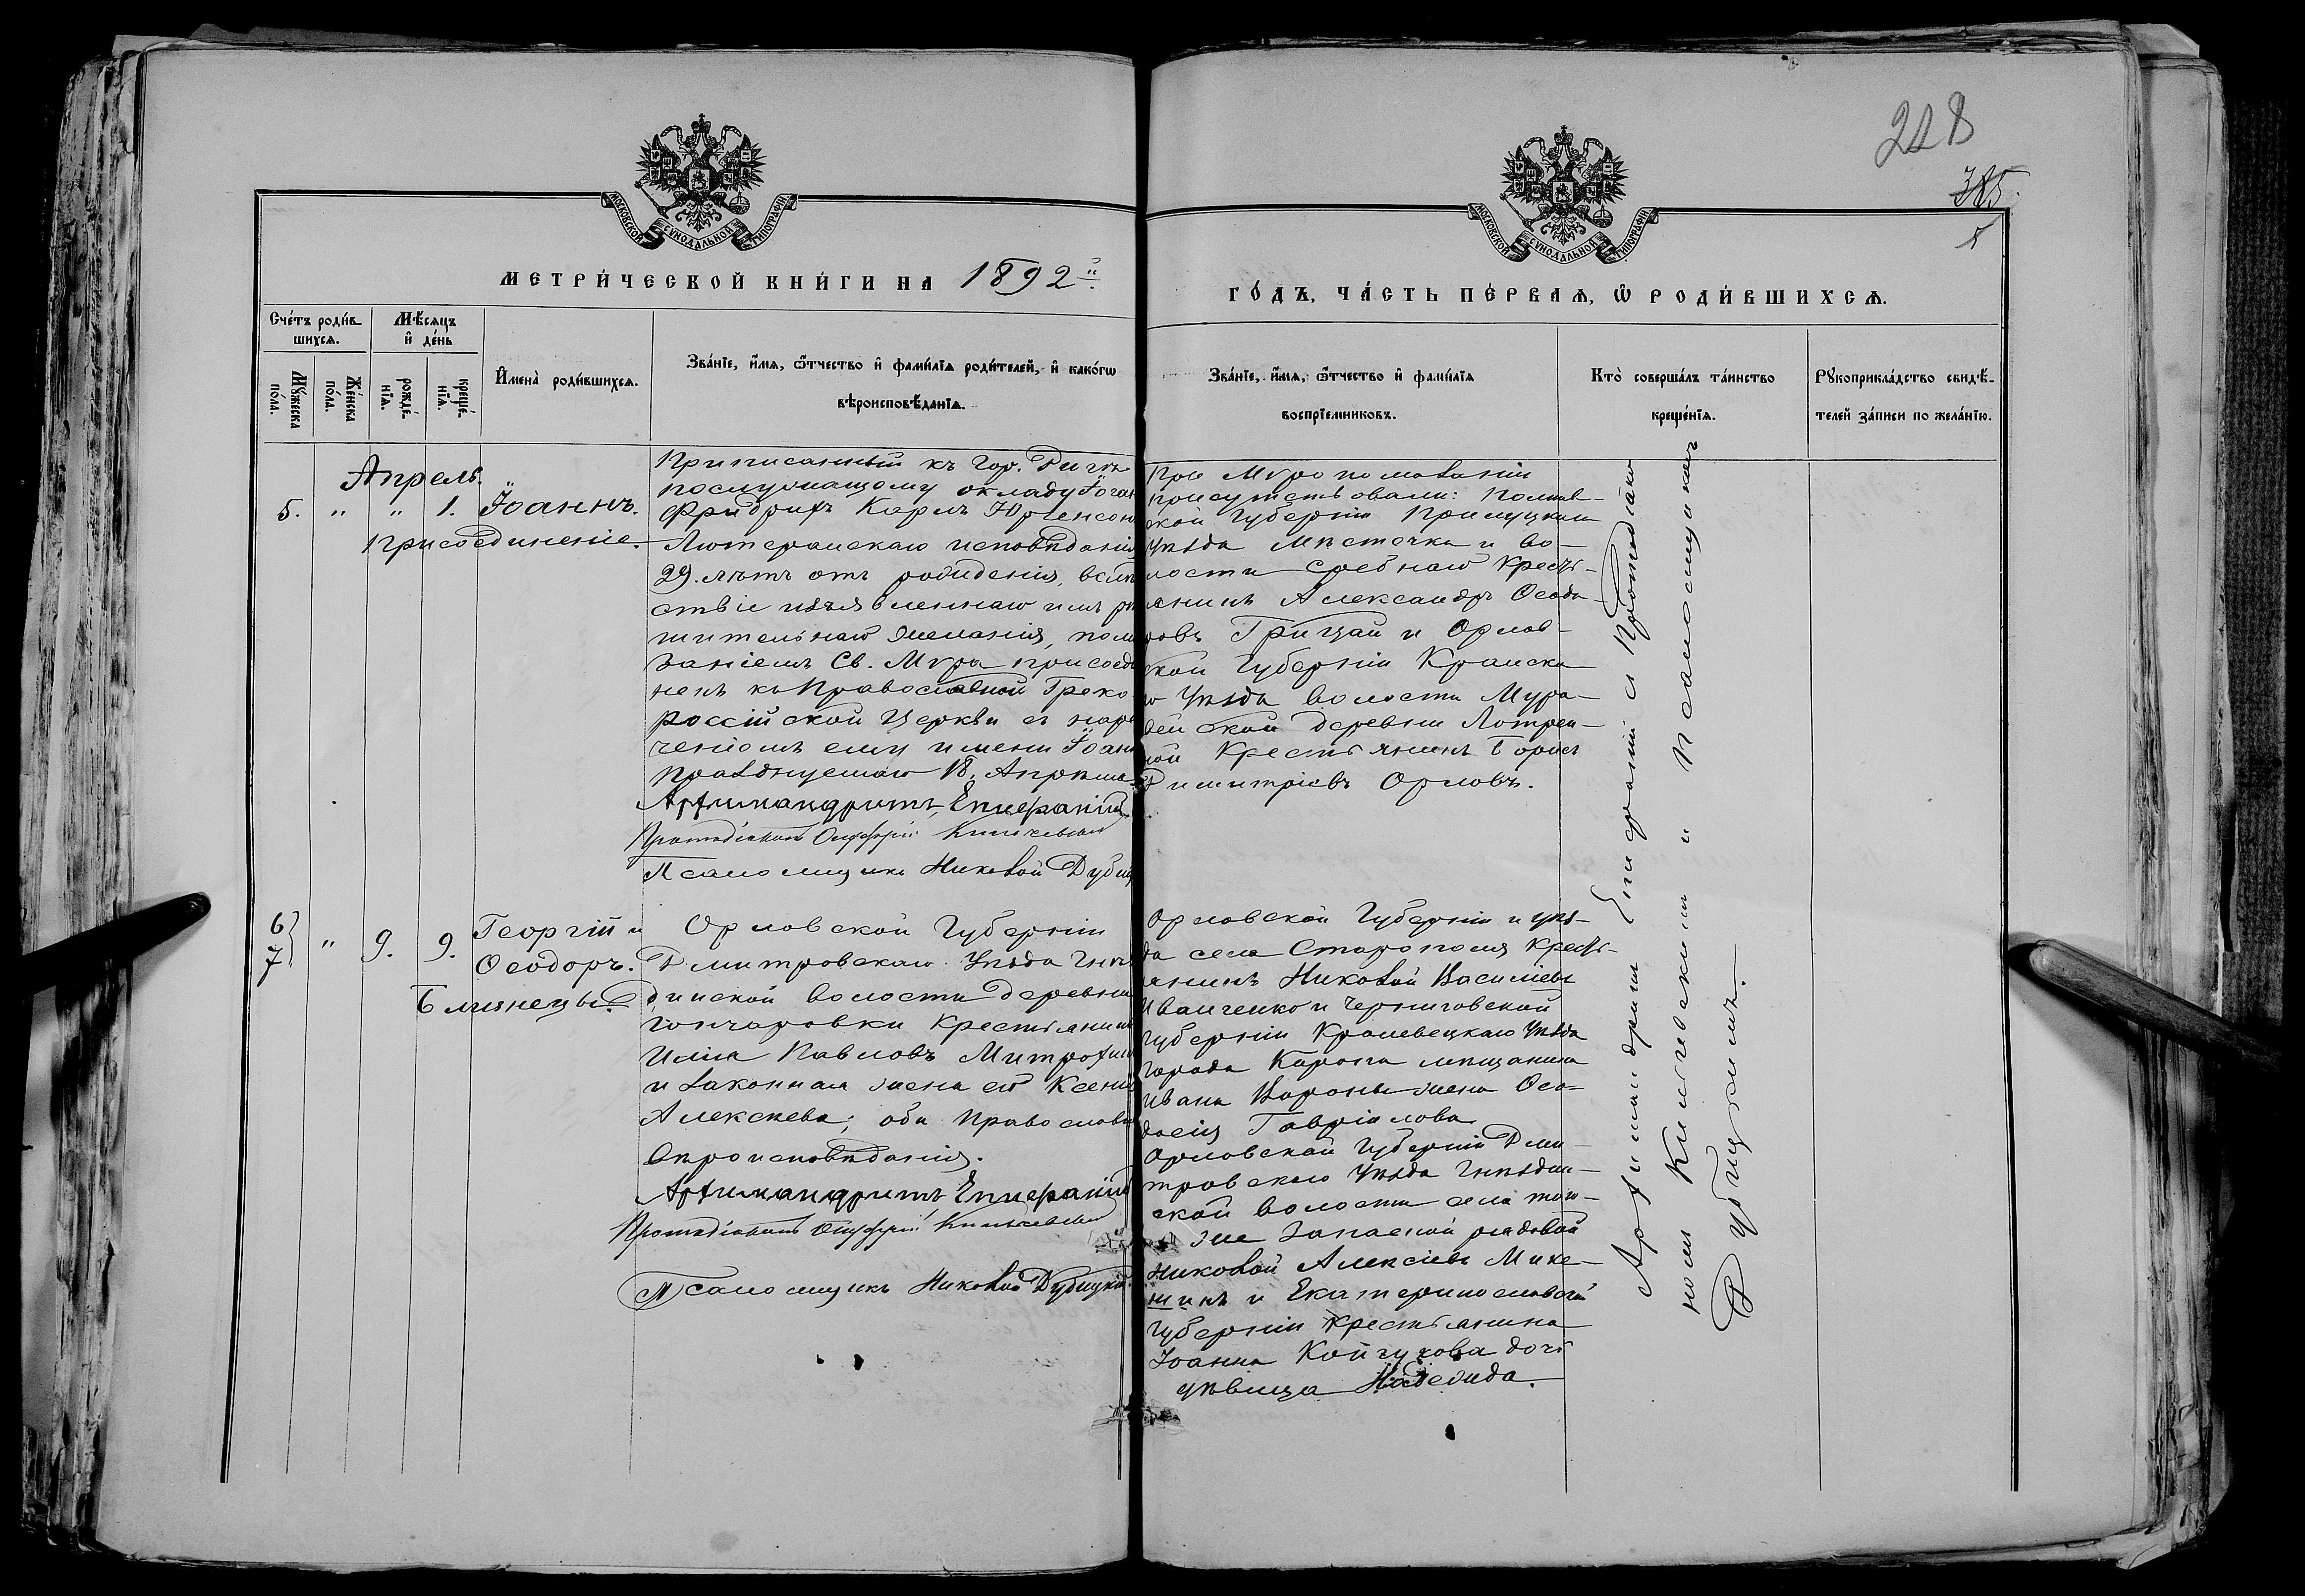 228
385.
5
МОСКОВСКОЙ СѴНОДАЛЬНОЙ ТИПОГРАФІИ
МОСКОВСКОЙ СѴНОДАЛЬНОЙ ТИПОГРАФІИ
МЕТРИ́ЧЕСКОЙ КНИ́ГИ НА 1892й
ГО́ДЪ, ЧА́СТЬ ПЕ́РВАѦ, Ѡ҆ РОДИ́ВШИХСѦ.
Сче́тъ роди́в-
шихсѧ.
Мꙋ́жеска
по́ла.
Же́нска
по́ла.
Мѣ́сѧцъ
и҆ де́нь
рожде́-
нїѧ.
креще́-
нїѧ.
И҆мена̀ роди́вшихсѧ.
Зва́нїе, и҆́мѧ, ѻ҆́тчество и҆ фами́лїѧ роди́телей, и҆ како́гѡ
вѣроисповѣ́данїѧ.
Зва́нїе, и҆́мѧ, ѻ҆́тчество и҆ фами́лїѧ
воспрїе́мниковъ.
Кто̀ соверша́лъ та́инство
креще́нїѧ.
Рꙋкоприкла́дство свидѣ́-
телей за́писи по жела́нїю.
Апрель.
5. " " 1. Іоаннъ.
присоединеніе.
Приписанный къ гор. Ригѣ
послужащому окладу Іоган
Фридрихъ Карлъ Юргенсон
Лютеранскаго исповѣданія
29. лѣтъ отъ рожденія, вслѣд
ствіе изъявленнаго имъ рѣ
шительнаго желанія, пома
заніемъ Св. Мѵра присоеди
ненъ къ Православной Греко
россійской Церкви съ наре
ченіемъ ему имени Іоан
празднуемаго 18. Апрѣля
Архимандритъ Епифаній
Протодіаконъ Онуфрій Кипгевскій
Псаломщикъ Николай Дубиц
При Мѵропомазаніи
присутствовали: Полтав-
ской Губерніи Прилуцкаго
Уѣзда мѣстечка и во-
лости Сребнаго Кресть-
янинъ Александръ Ѳеодо-
ровъ Грицай и Орлов-
ской Губерніи Кромска
го Уѣзда волости Мура-
вей ской деревни Лотрен-
ной Крестьянинъ Борисъ
Димитріевъ Орловъ.
6
7 " 9. 9. Георгій и
Ѳеодоръ.
Близнецы.
Орловской Губерніи
Дмитровскаго Уѣзда Гнѣз
динской волости деревни
Гончаровки Крестьянинъ
Илія Павловъ Митрохин
и законная жена его Ксенія
Алексѣева; оба Православн
вѣроисповѣданія.
Архимандритъ Епифаній
Протодіаконъ Онуфрій Кипгевскій
Псаломщикъ Николай Дубицкій
Орловской Губерніи и уѣз-
да села Старополя Кресть-
янинъ Николай Васильевъ
Иванченко и Черниговской
Губерніи Кролевецкаго Уѣзда
города Коропа мѣщанина
Ивана Вороны жена Ѳео-
досія Гавріилова.
Орловской Губерніи Дми-
тровскаго Уѣзда Гнѣздин-
ской волости села того-
же запасной рядовой
Николай Алексіевъ Мике-
шинъ и Екатеринославской
Губерніи крестьянина
Іоанна Койчукова дочь
дѣвица Надежда.
Архимандритъ Епифаній съ Протодіако
номъ Кипгевскимъ и Псаломщикомъ
Дубицкимъ.